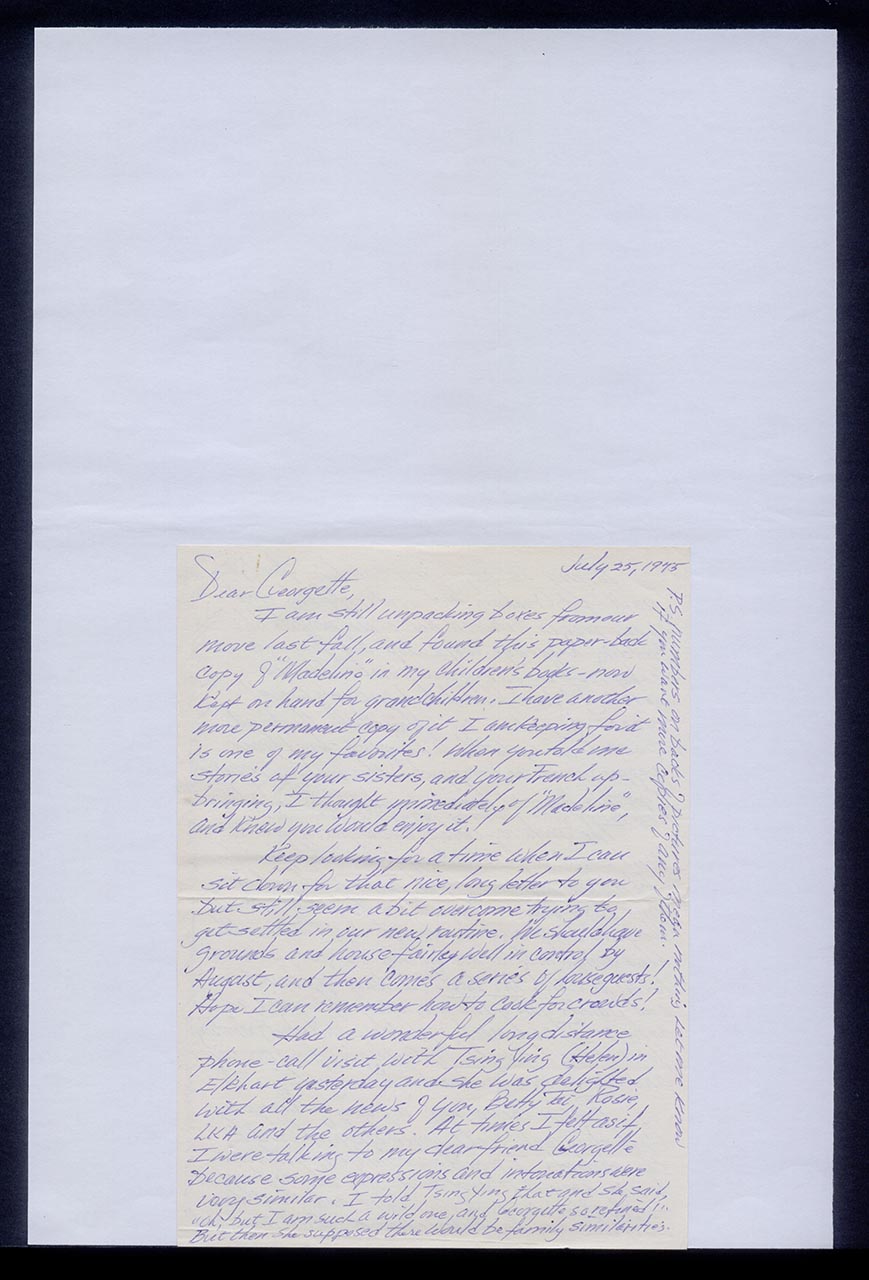 July 25, 1975
Dear Georgette,
I am still unpacking boxes from our
move last fall, and found this paper-back
copy of "Madeline" in my children's books - now
kept on hand for grandchildren. I have another
more permanent copy of it I am keeping for it
is one of my favorites! When you told me
stories of your sisters, and your French up-
bringing, I thought immediately of "Madeline",
and knew you would enjoy it.
Keep looking for a time when I can
sit down for that nice, long letter to you
but still seem a bit overcome trying to
get settled in our new routine. We should have
grounds and house fairley well in control by
August, and then comes a series of houseguests!
Hope I can remember how to cook for crowds!
Had a wonderful long distance
phone-call visit with Tsing Ying (Helen) in
Elkhart yesterday and she was delighted
with all the news of you, Betty Tai, Rosie,
LKA and the others. At times I felt as if
I were talking to my dear friend Georgette
because some expressions and intonations were
very similar. I told Tsing Ying that and she said,
"Oh, but I am such a wild one, and Georgette so refined!".
But then she supposed there would be family similarities.
PS. numbers on backs of pictures mean nothing let me know
if you want more copies of any of them.